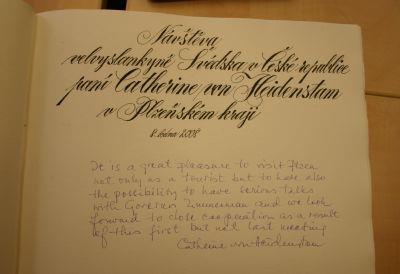 Návštěva
velvyslankyně Švédska v České republice
paní Catherine von Heidenstam
v Plzeňském kraji
8. ledna 2008
It is a great pleasure to visit Plzen
not only as a tourist but to have also
the possibility to have serious talks
with Governor Zimmerman and we look
forward to close cooperation as a result
of this first but not last meeting
Catherine von Heidenstam